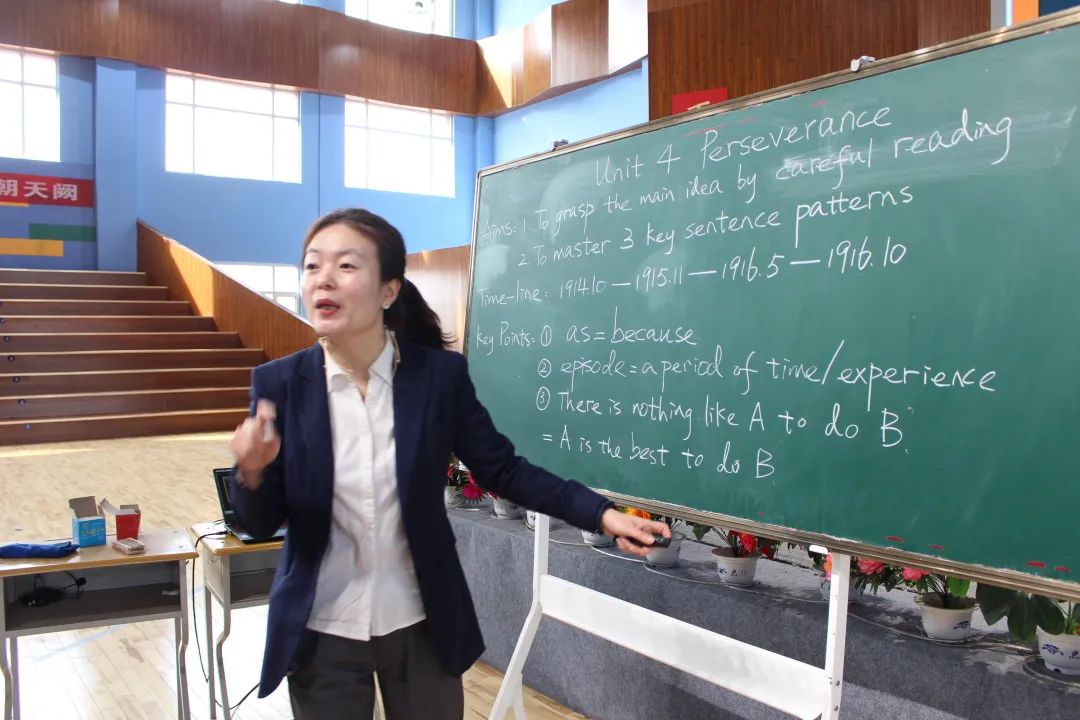 朝天阙
Unit 4 Perseverance
Aims: 1 To grasp the main idea by careful reading
2. To master 3 key sentence patterns
Time-line: 1914.10 — 1915.11 — 1916.5 — 1916.10
Key Points: ① as = because
② episode = a period of time/experience
③ There is nothing like A to do B.
= A is the best to do B